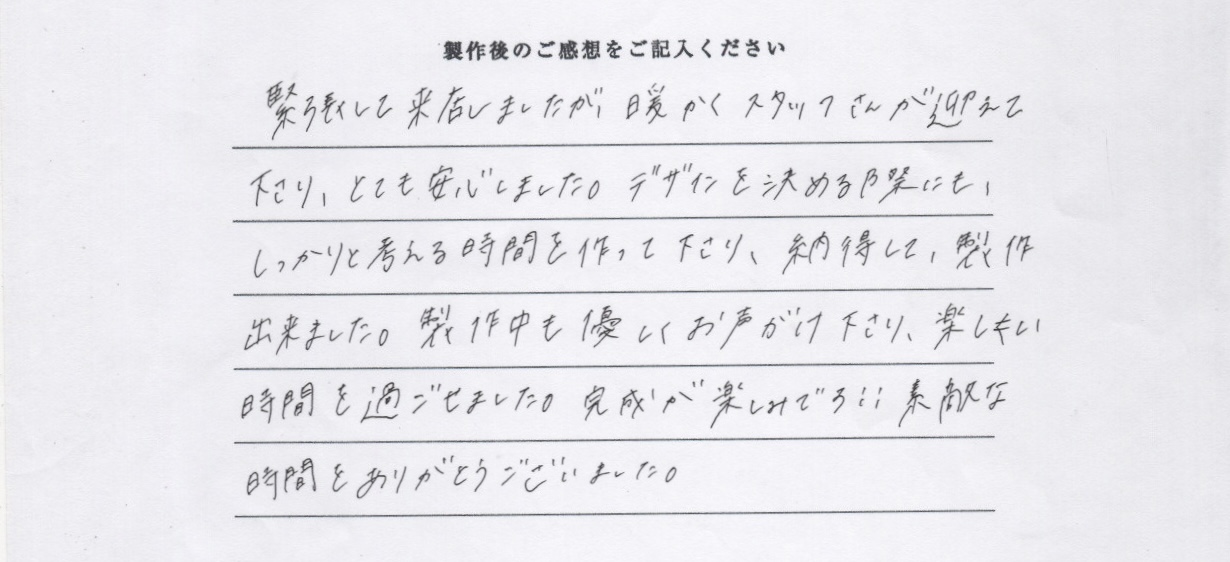 製作後のご感想をご記入ください
緊張して来店しましたが、暖かくスタッフさんが迎えて
下さり、とても安心しました。デザインを決める際にも、
しっかりと考える時間を作って下さり、納得して、製作
出来ました。製作中も優しくお声がけ下さり、楽しい
時間を過ごせました。完成が楽しみです!! 素敵な
時間をありがとうございました。